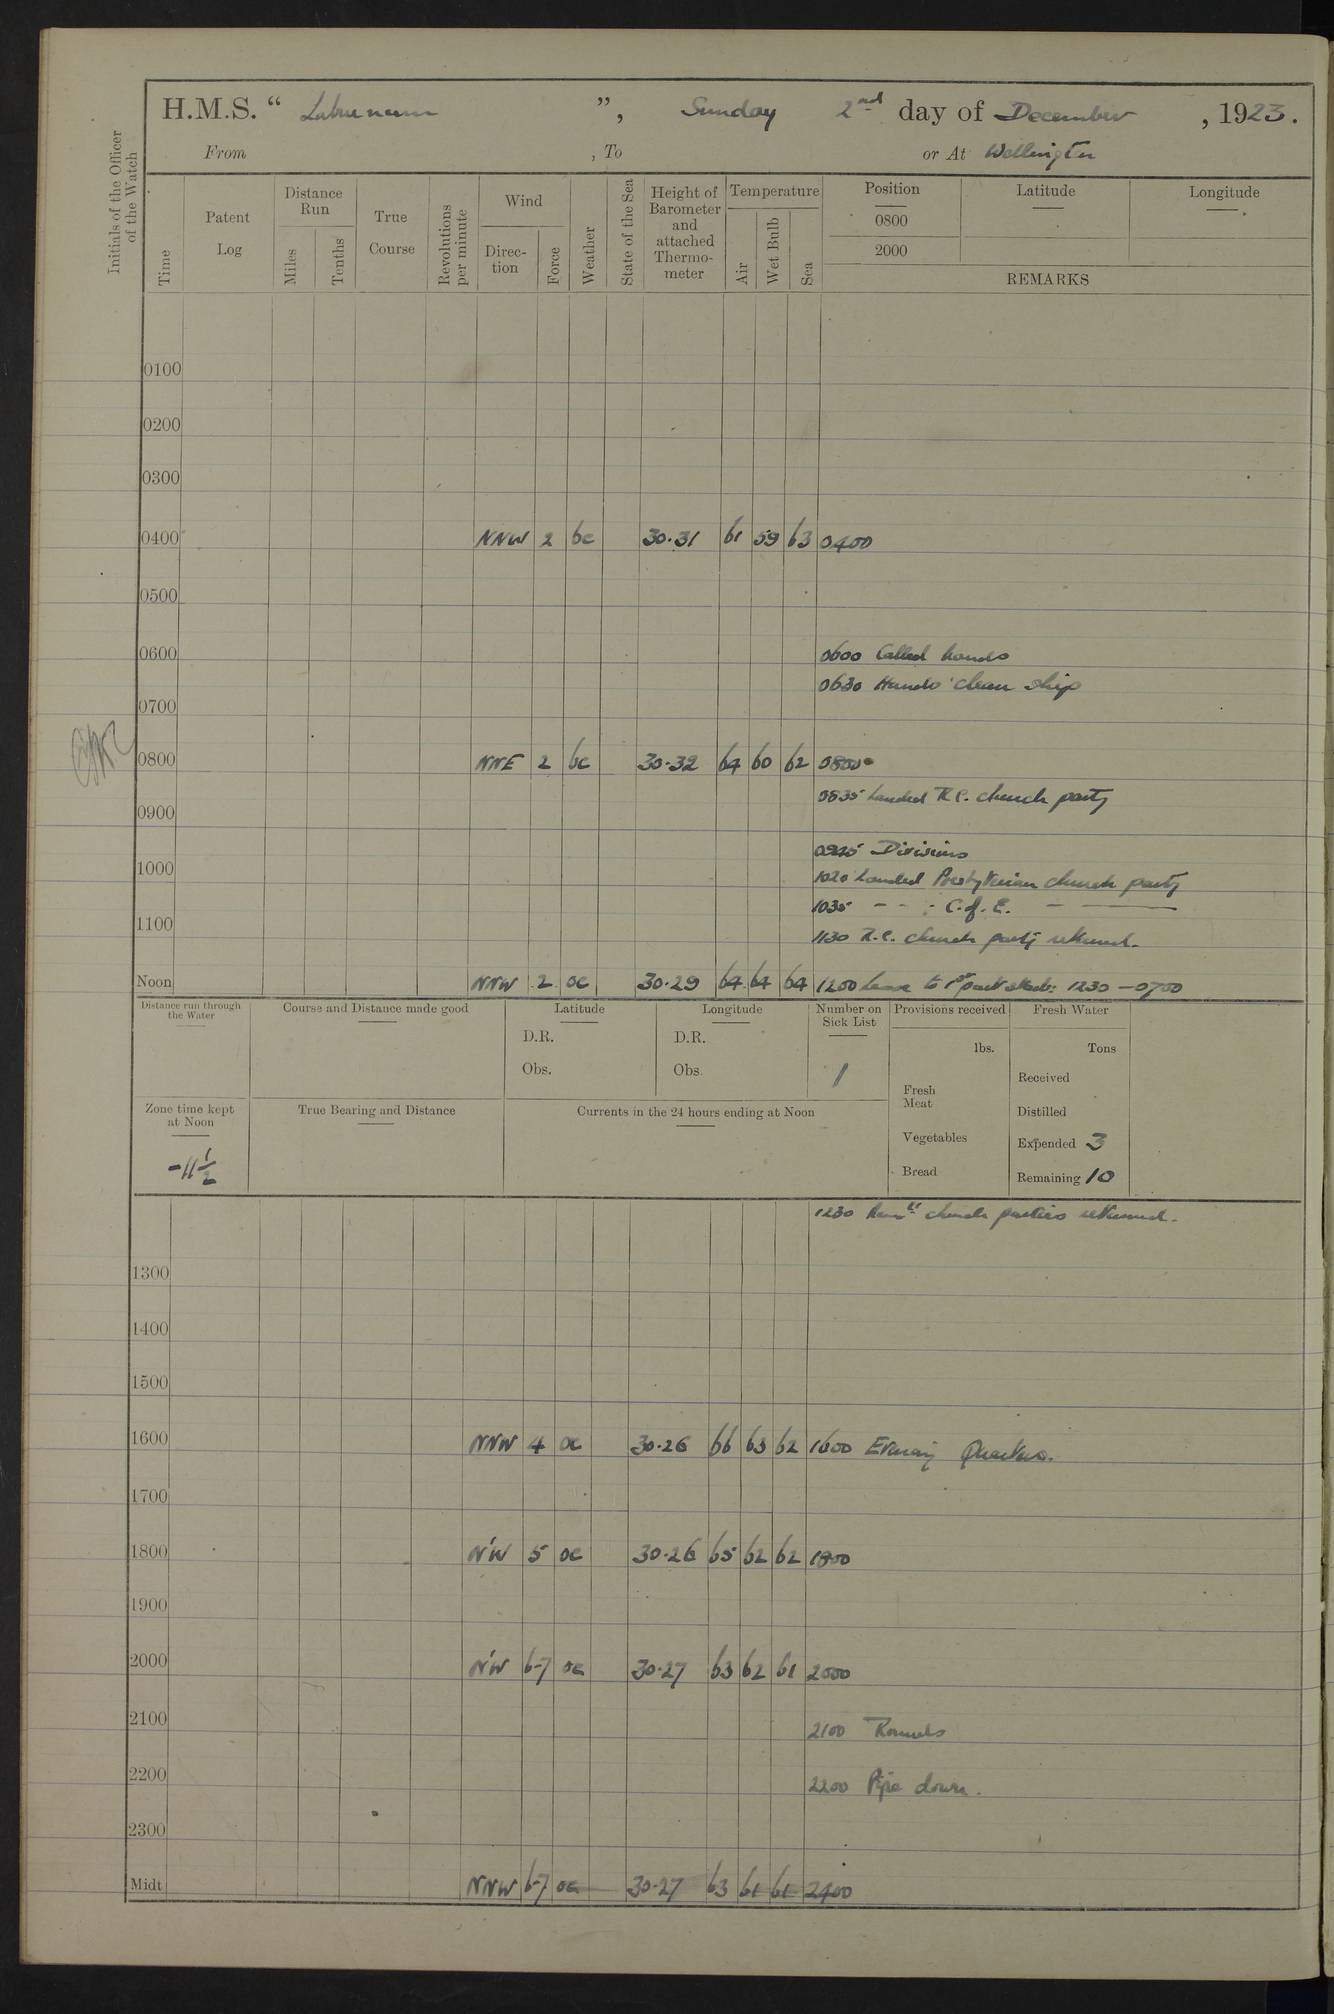 H.M.S. “ Laburnum ”, Sunday 2nd day of December, 1923.
From , To or At Wellington
Initials of the Officer of the Watch
Time
Patent Log
Distance Run
Miles
Tenths
True Course
Revolutions per minute
Wind
Direc-tion
Force
Weather
State of the Sea
Height of Barometer and attached Thermo-meter
Temperature
Air
Wet Bulb
Sea
Position
0800
2000
Latitude
Longitude
REMARKS
0100
0200
0300
0400 NNW 2 bc 30.31 61 59 63 0400
0500
0600 0600 Called hands
0630 Hands clean ship
0700
0800 NNE 2 bc 30.32 64 60 62 0800
0835 Landed R.C. church party
0900
0945 Divisions
1000
1020 Landed Presbyterian church party
1035 - - : C. of E. - -
1100
1130 R.C. church party returned.
Noon NNW 2 oc 30.29 64 64 64 1200 Leave to 1st part Starb: 1230 - 0700
Distance run through the Water
Course and Distance made good
Latitude
D.R.
Obs.
Longitude
D.R.
Obs.
Number on Sick List
1
Provisions received
lbs.
Fresh Meat
Vegetables
Bread
Fresh Water
Tons
Received
Distilled
Expended 3
Remaining 10
Zone time kept at Noon
-11 1/2
True Bearing and Distance
Currents in the 24 hours ending at Noon
1230 church parties returned.
1300
1400
1500
1600 NNW 4 oc 30.26 66 63 62 1600 Evening Quarters.
1700
1800 N'W 5 oc 30.26 65 62 62 1800
1900
2000 N'W 6-7 oc 30.27 63 62 61 2000
2100 2100 Rounds
2200 2200 Pipe down.
2300
Midt NNW 6-7 oc 30.27 63 61 61 2400